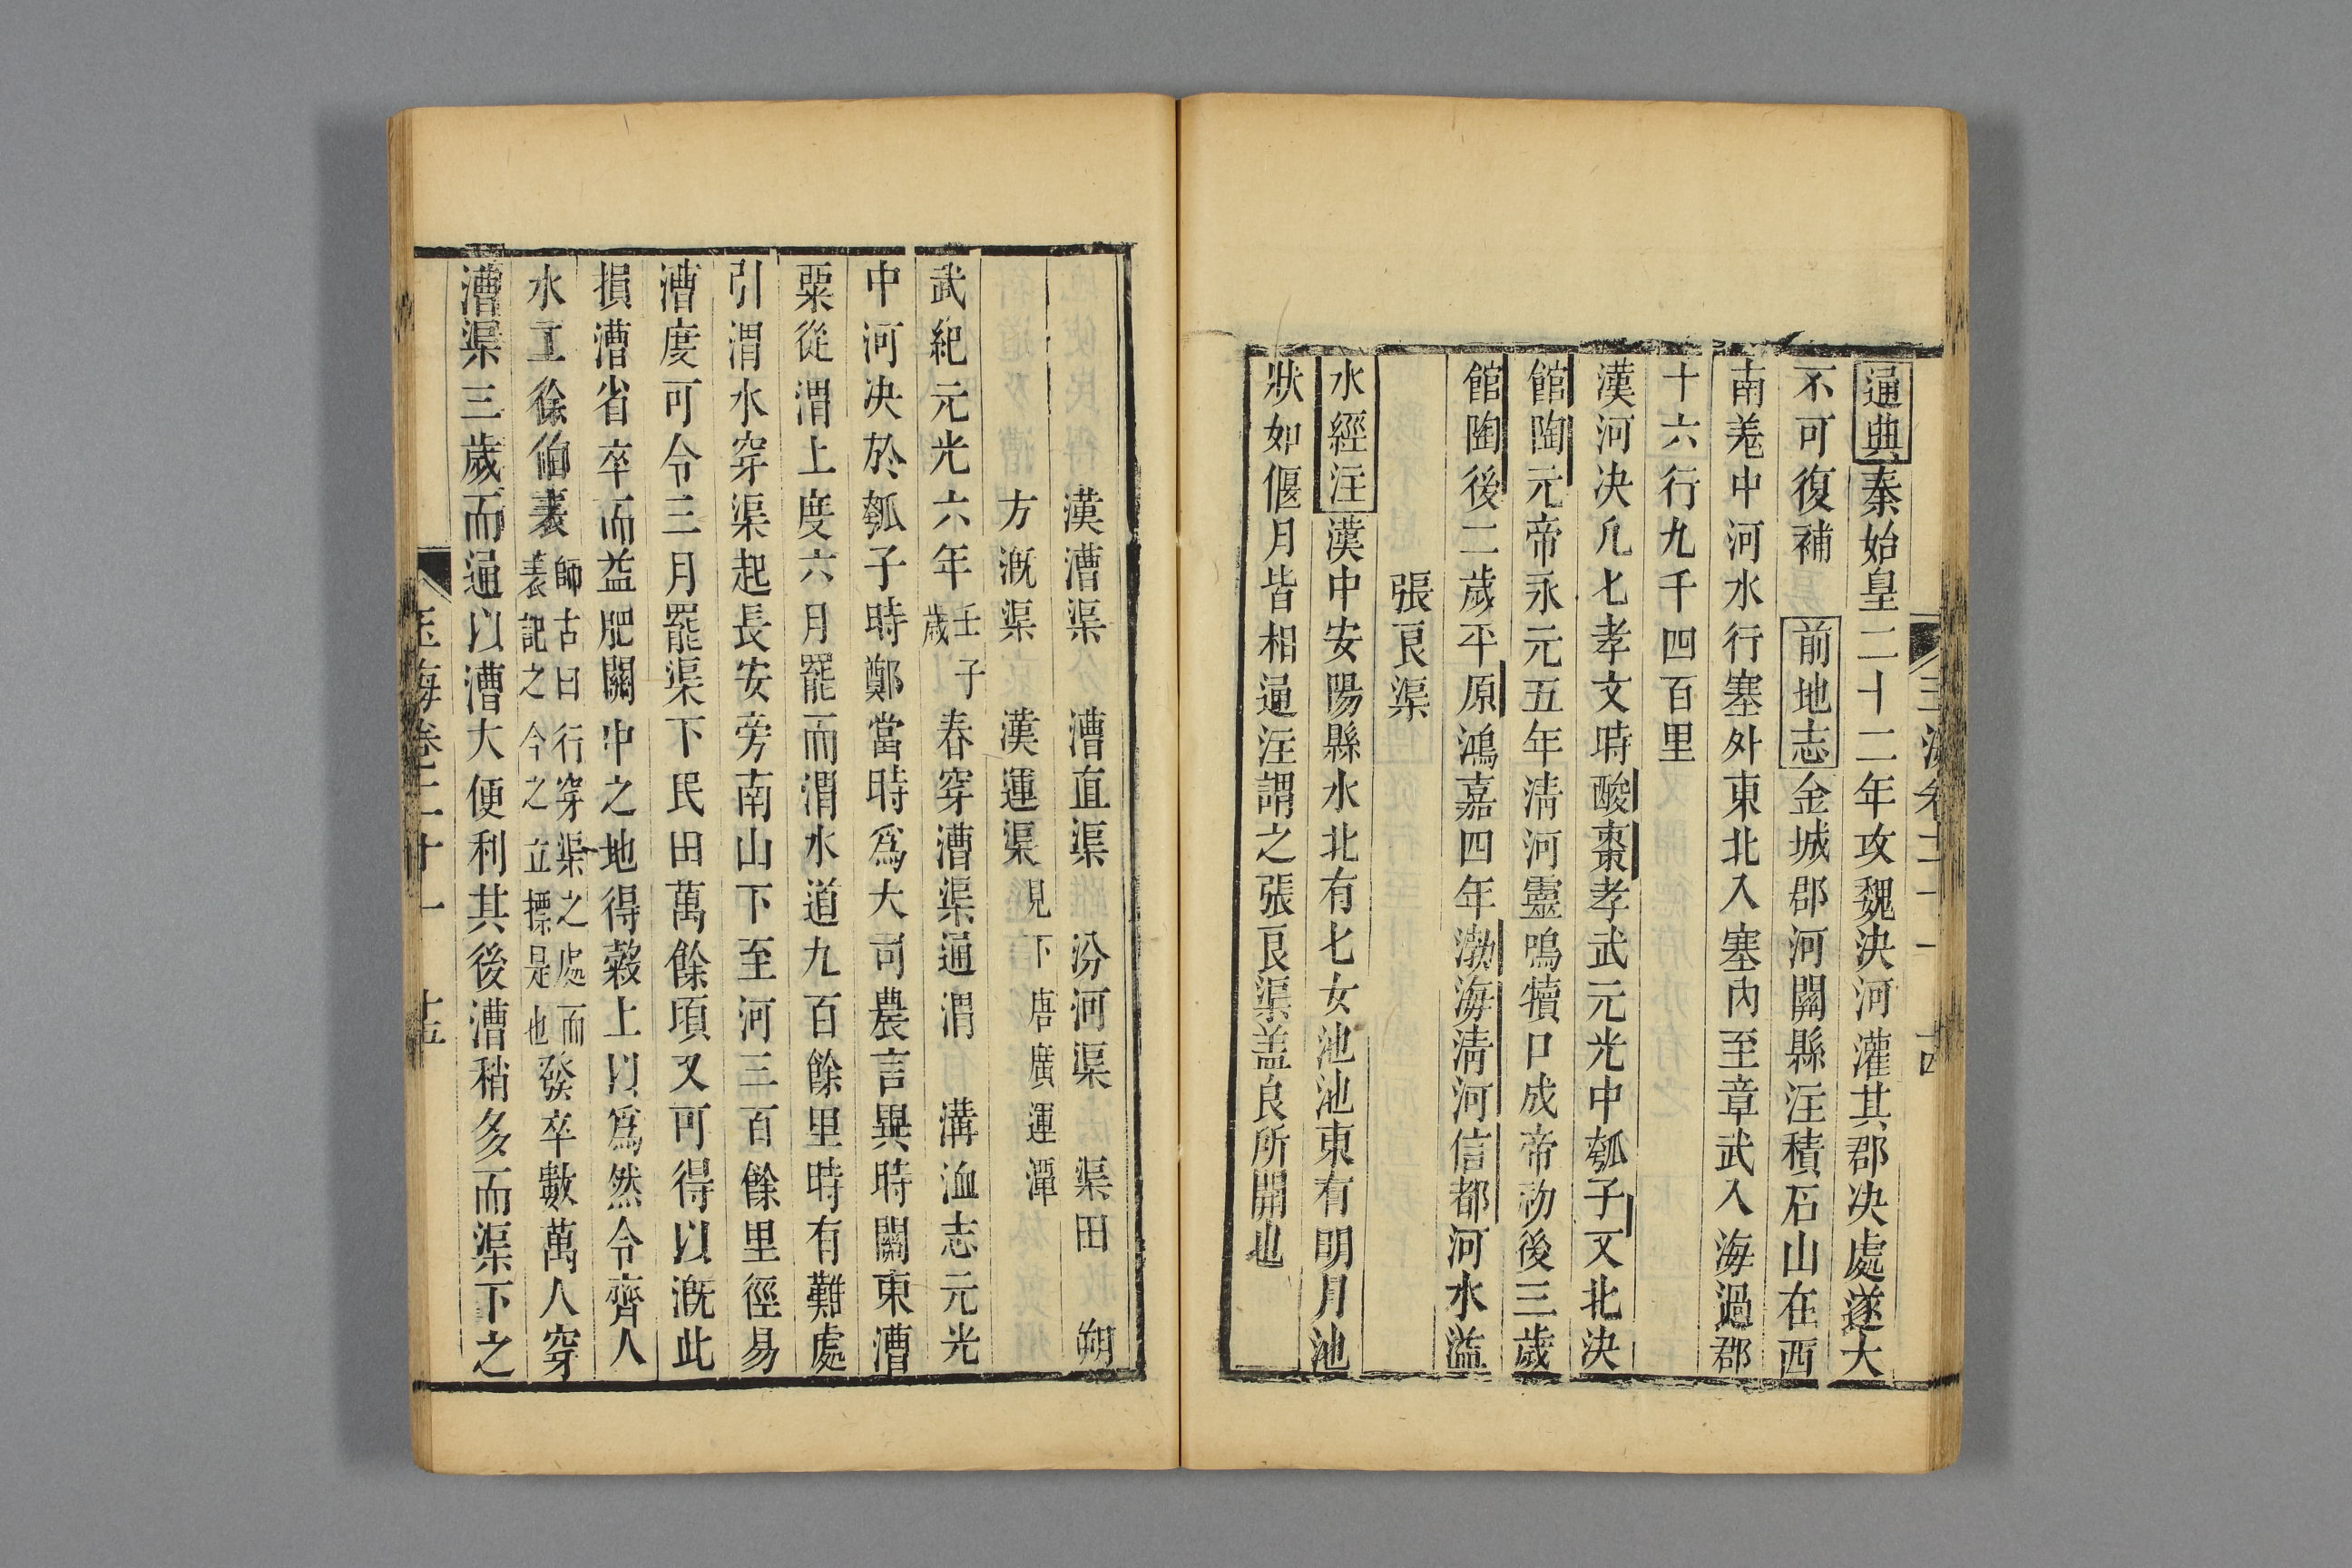 通典秦始皇二十二年攻魏決河灌其郡决處遂大
不可復補 前地志金城郡河關縣注積石山在西
南羗中河水行塞外東北入塞內至章武入海過郡
十六行九千四百里
漢河决凡七孝文時酸棗孝武元光中瓠子又北决
館陶元帝永元五年淸河靈鳴犢口成帝初後三歲
館陶後二歲平原鴻嘉四年渤海淸河信都河水溢
張良渠
水經注漢中安陽縣水北有七女池池東有明月池
狀如偃月皆相通注謂之張良渠盖良所開也
漢漕渠 漕直渠 汾河渠 渠田 朔
方漑渠 漢運渠見下唐廣運潭
武紀元光六年壬子歲春穿漕渠通渭 溝洫志元光
中河决於瓠子時鄭當時爲大司農言異時關東漕
粟從渭上度六月罷而渭水道九百餘里時有難處
引渭水穿渠起長安旁南山下至河三百餘里徑易
漕度可令三月罷渠下民田萬餘頃又可得以漑此
損漕省卒而益肥關中之地得穀上以爲然令齊人
水工徐伯表師古曰行穿渠之處而表記之今之立摽是也發卒數萬人穿
漕渠三歲而通以漕大便利其後漕稍多而渠下之
玉海卷二十一 十五